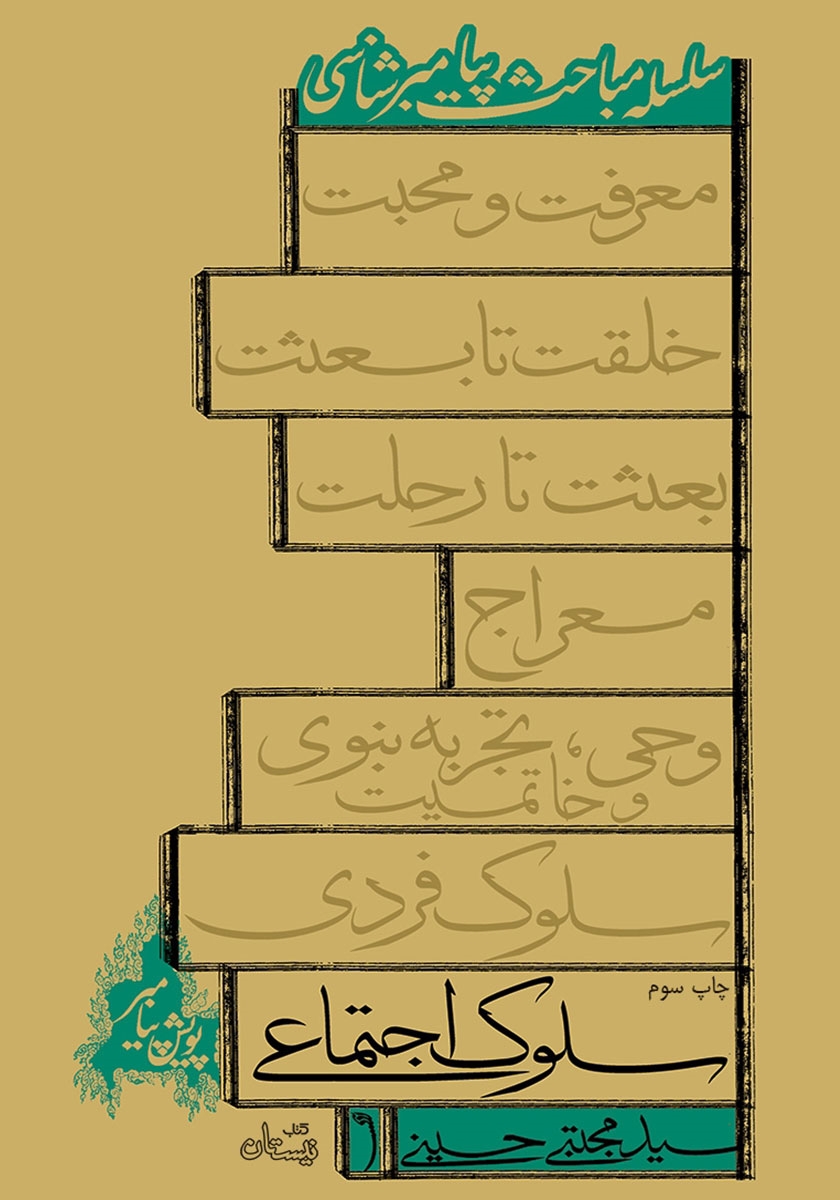 سلسله مباحث پیامبرشناسی
معرفت و محبت
خلقت تا بعثت
بعثت تا رحلت
معراج
وحی، تجربه نبوی
و خاتمیت
سلوک فردی
چاپ سوم
سلوک اجتماعی
پویش پیامبر
سید مجتبی حسینی
کتاب
نیستان